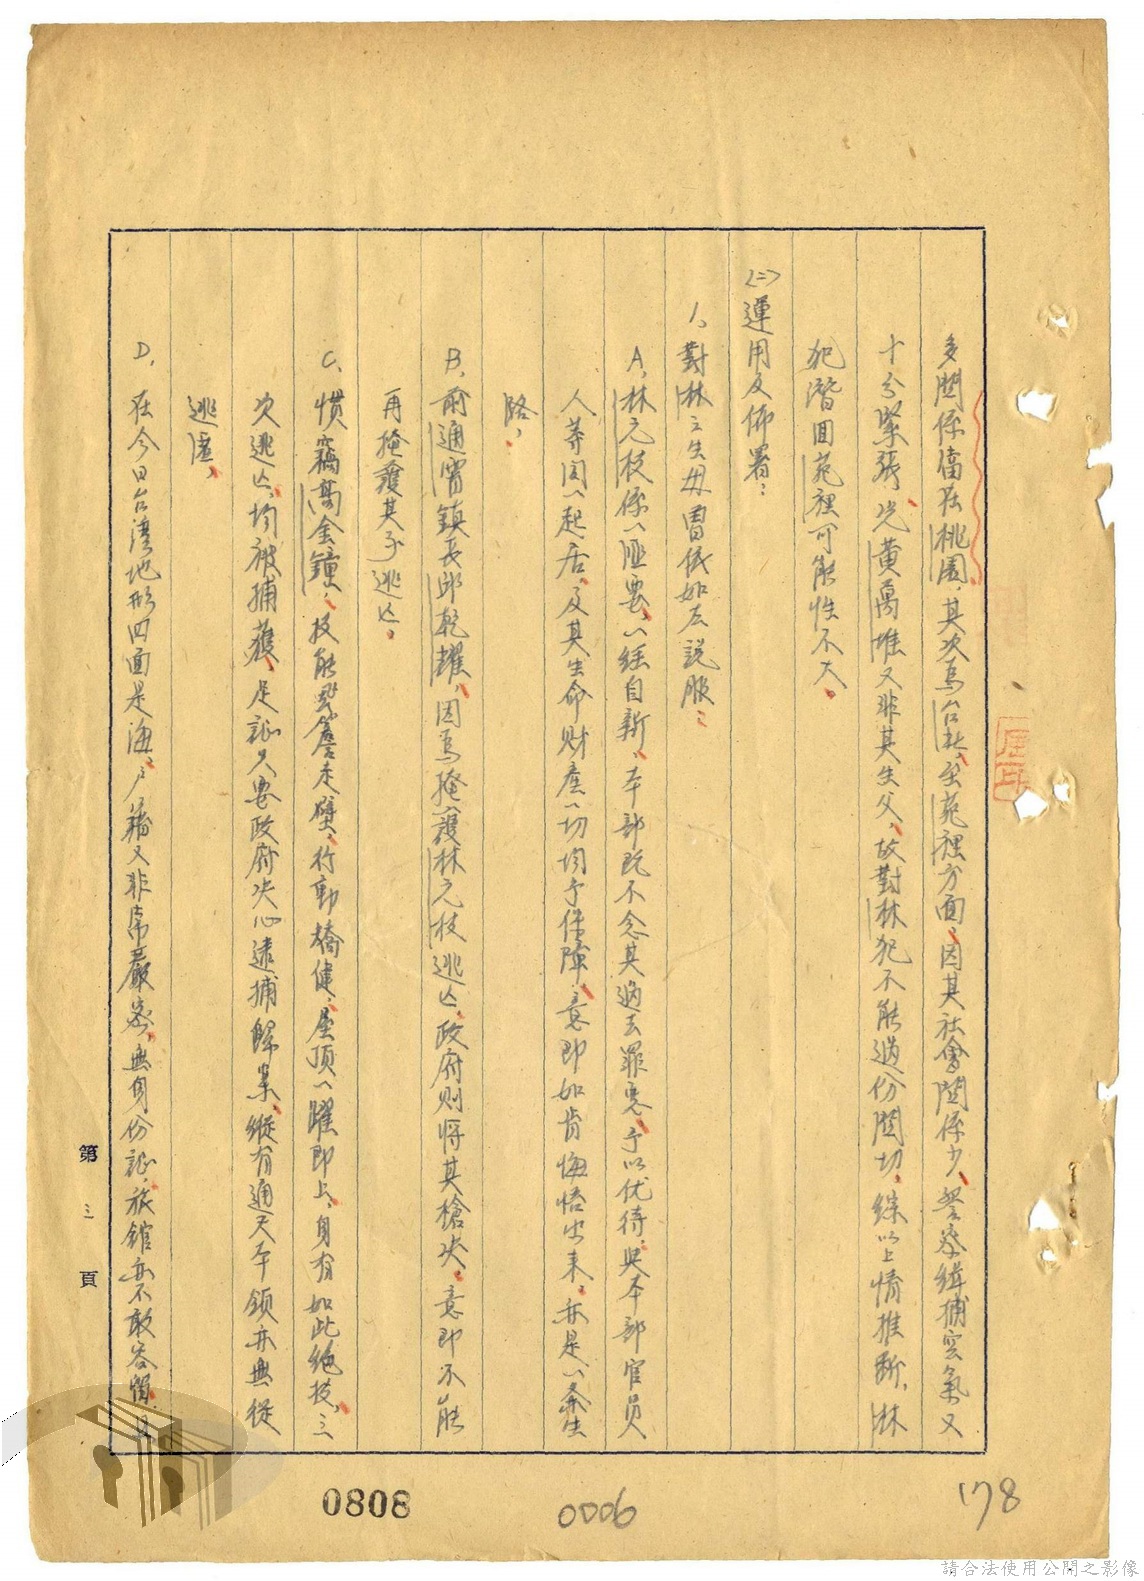 多關係僅在桃園，其次為台北，至苑裡方面，因其社會關係少，警察緝捕空氣又
十分緊張，況黃萬堆又非其生父，故對林犯不能過份關切，綜以上情推斷，林
犯潛回苑裡可能性不大。
(二)運用及佈署：
1、對林之生母曾依如左說服：
A、林元枝係一匪要，一經自新，本部既不念其過去罪惡，予以优待，與本部官員
人等同一起居，及其生命財產一切均予保障，意即如肯悔悟出來，亦是一条生
路，
B、前通霄鎮長邱乾耀，因為掩護林元枝逃亡，政府則將其槍决，意即不能
再掩護其子逃亡。
C、慣竊高金鐘，技能飛簷走壁，行動矯健，屋頂一躍即上，身有如此絶技，三
次逃亡，均被捕獲，足証只要政府决心逮捕歸案，縱有通天本領亦無從
逃匿，
D、在今日台湾地形四面是海，户籍又非常嚴密，無身份証，旅館亦不敢容留，且
第三頁
0808
0006
178
請合法使用公開之影像